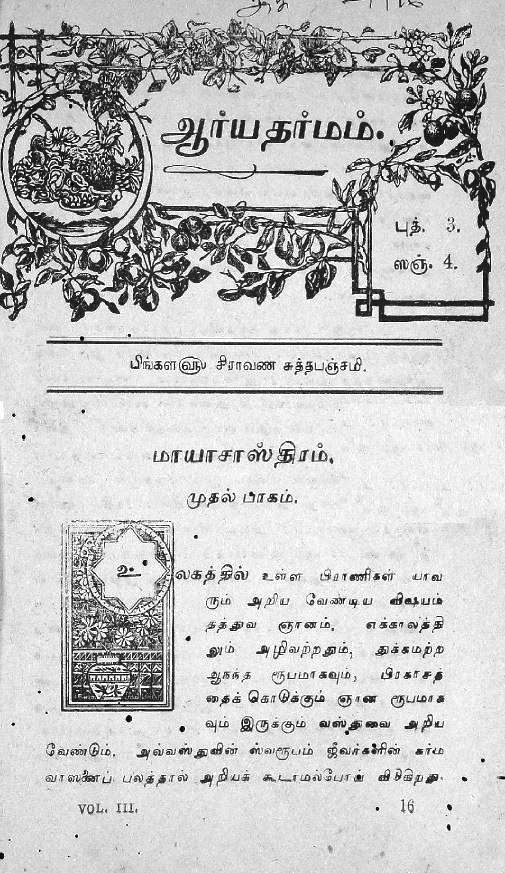 ஆர்யதர்மம்.
புத். 3.
ஸஞ். 4.
பிங்கள௵ சிராவண சுத்தபஞ்சமி.
மாயாசாஸ்திரம்.
முதல் பாகம்.
உலகத்தில் உள்ள பிராணிகள் யாவ
ரும் அறிய வேண்டிய விஷயம்
தத்துவ ஞானம். எக்காலத்தி
லும் அழிவற்றதும், துக்கமற்ற
ஆநந்த ரூபமாகவும், பிரகாசத்
தைக் கொடுக்கும் ஞான ரூபமாக
வும் இருக்கும் வஸ்துவை அறிய
வேண்டும். அவ்வஸ்துவின் ஸ்வரூபம் ஜீவர்களின் கர்ம
வாஸனைப் பலத்தால் அறியக் கூடாமல்போய் விடுகிறது.
VOL. III. 16